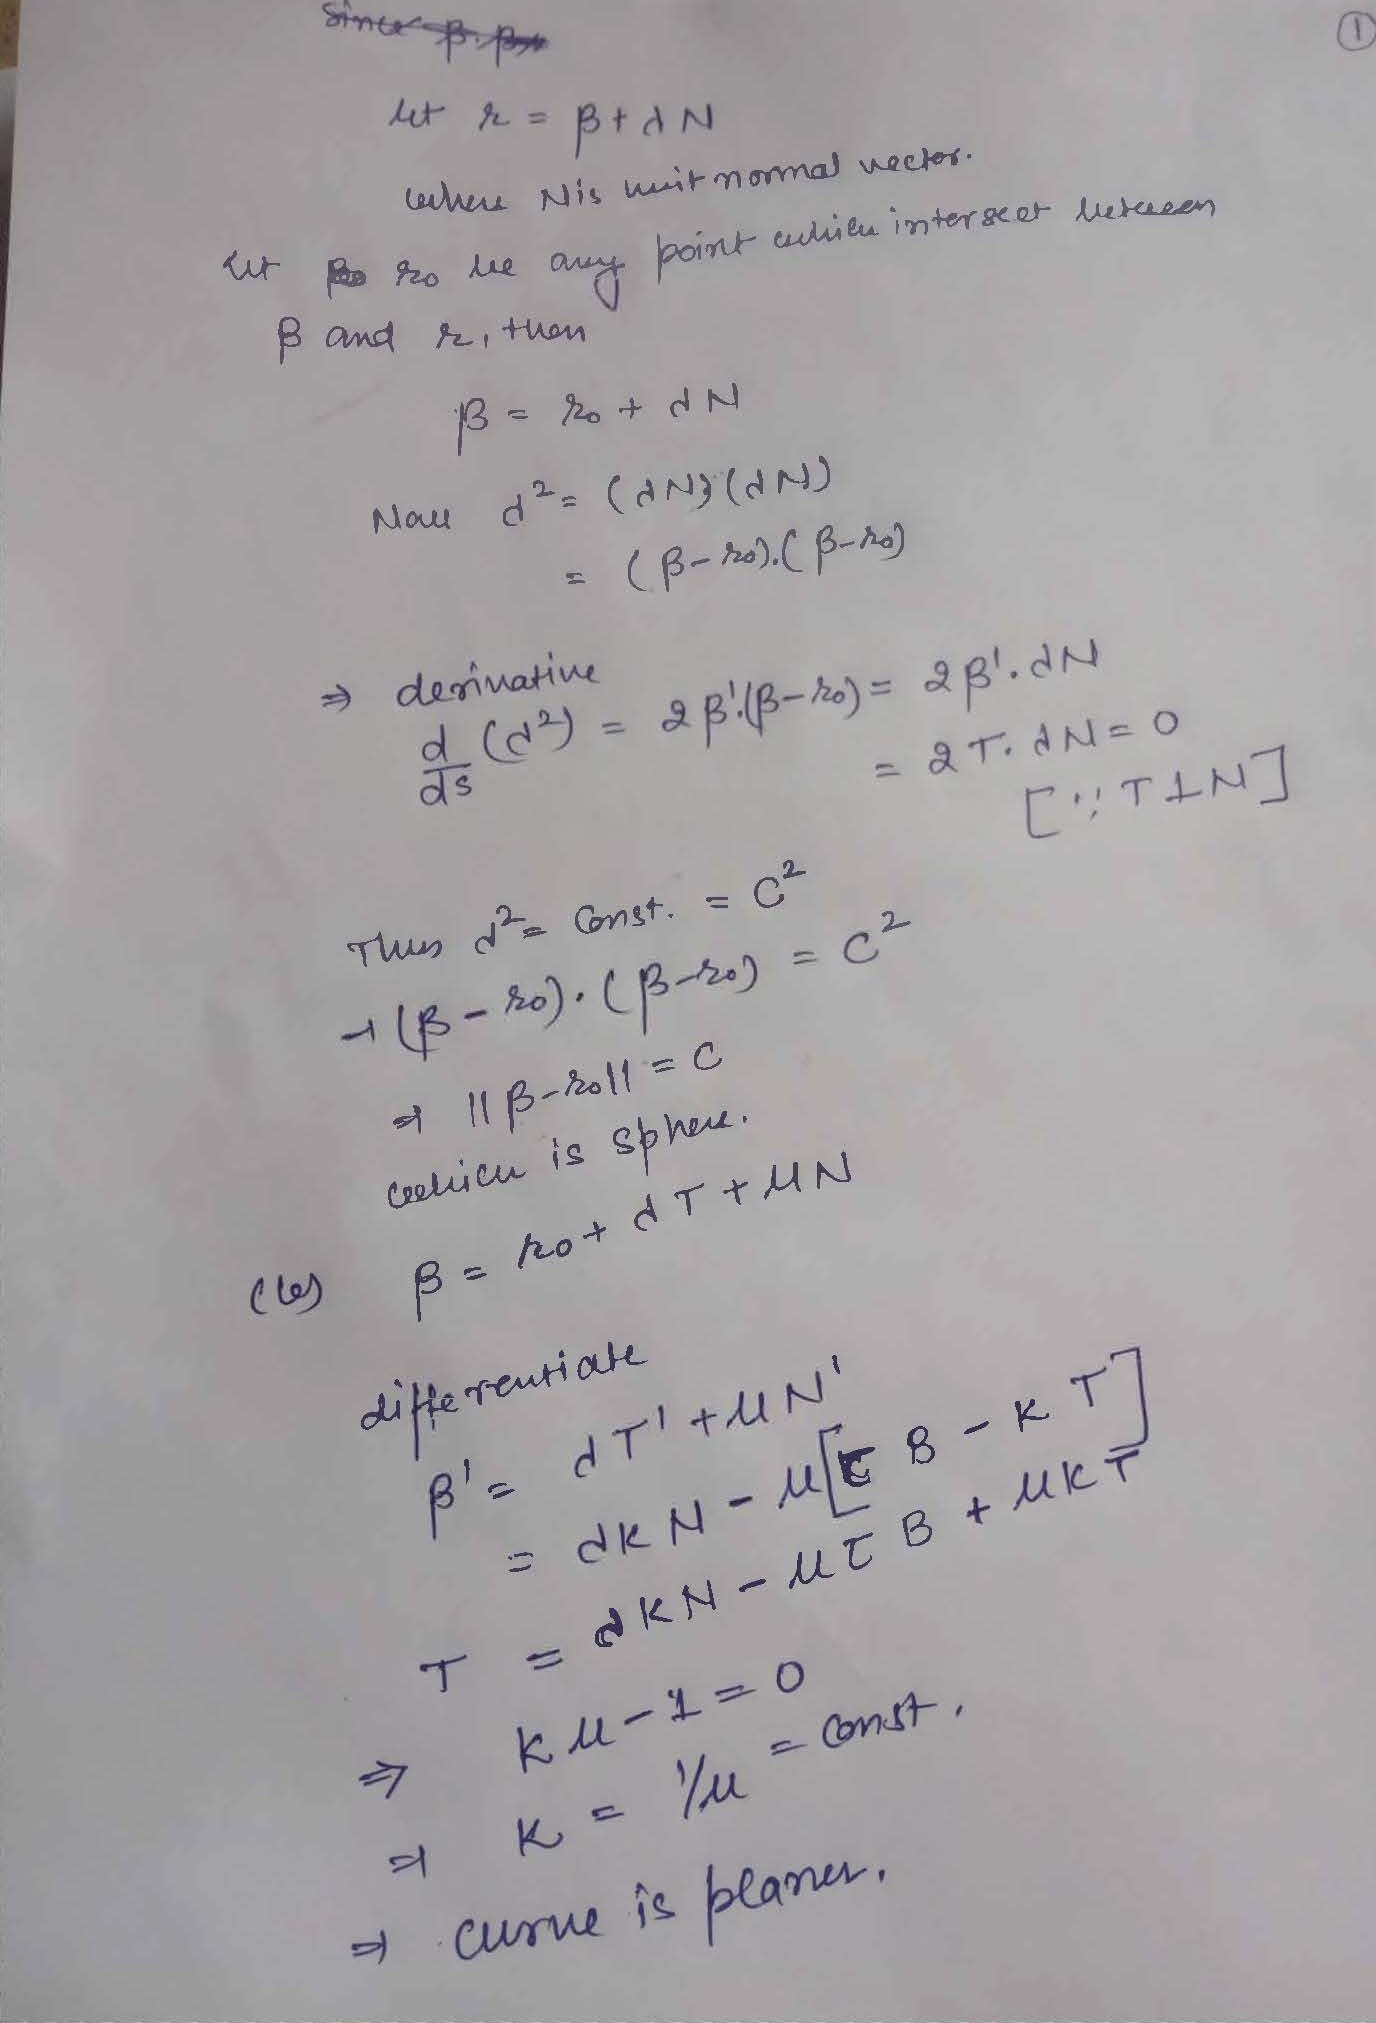 ①
Since β.β
let r = β + λN
where N is unit normal vector.
let r₀ be any point which intersect between
β and r, then
β = r₀ + λN
Now λ² = (λN).(λN)
= (β-r₀).(β-r₀)
⇒ derivative
d/ds (λ²) = 2β'.(β-r₀) = 2β'.λN
= 2T.λN = 0
[∵ T⊥N]
Thus λ² = Const. = C²
⇒ (β-r₀).(β-r₀) = C²
⇒ ||β-r₀|| = C
which is sphere.
(b) β = r₀ + λT + μN
differentiate
β' = λT' + μN'
= λKN - μ[τB - KT]
T = λKN - μτB + μKT
⇒ Kμ - 1 = 0
⇒ K = 1/μ = const.
⇒ curve is planer.